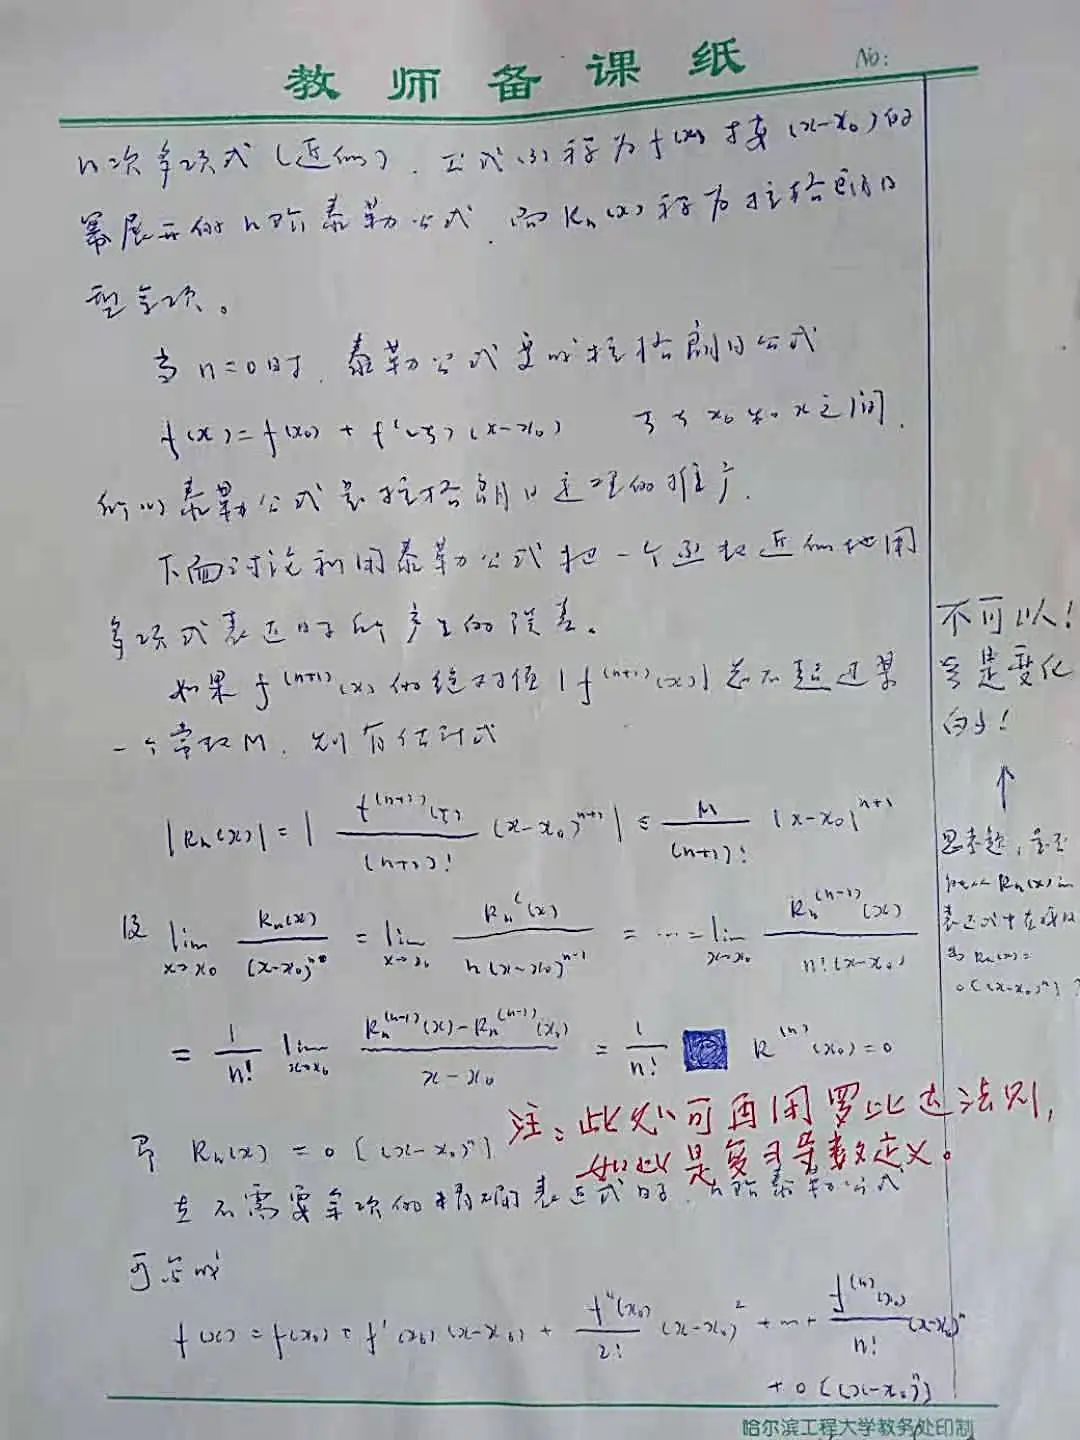 教师备课纸 No:
n次多项式(近似), 公式(3)称为f(x)按(x-x₀)的
幂展开的n阶泰勒公式, 而Rₙ(x)称为拉格朗日
型余项。
当n=0时, 泰勒公式变成拉格朗日公式
f(x)=f(x₀)+f'(ξ)(x-x₀) ξ在x₀和x之间.
所以泰勒公式是拉格朗日定理的推广.
下面讨论利用泰勒公式把一个函数近似地用
多项式表达时所产生的误差。
如果f⁽ⁿ⁺¹⁾(x)的绝对值|f⁽ⁿ⁺¹⁾(x)|总不超过某
一个常数M, 则有估计式
|Rₙ(x)|=|f⁽ⁿ⁺¹⁾(ξ)/(n+1)! (x-x₀)ⁿ⁺¹| ≤ M/(n+1)! |x-x₀|ⁿ⁺¹
及 lim x→x₀ Rₙ(x)/(x-x₀)ⁿ = lim x→x₀ Rₙ'(x)/n(x-x₀)ⁿ⁻¹ = ⋯ = lim x→x₀ Rₙ⁽ⁿ⁻¹⁾(x)/n!(x-x₀)
= 1/n! lim x→x₀ Rₙ⁽ⁿ⁻¹⁾(x)-Rₙ⁽ⁿ⁻¹⁾(x₀)/x-x₀ = 1/n! R⁽ⁿ⁾(x₀)=0
注:此处可再用罗比达法则,
即 Rₙ(x)=o[(x-x₀)ⁿ]
是复习导数定义。
在不需要余项的精确表达式时, n阶泰勒公式
可写成
f(x)=f(x₀)+f'(x₀)(x-x₀)+f''(x₀)/2! (x-x₀)²+⋯+f⁽ⁿ⁾(x₀)/n! (x-x₀)ⁿ
+o[(x-x₀)ⁿ]
不可以!
ξ是变化
的!
↑
思考题,是否
可以从Rₙ(x)的
表达式中直接
Rₙ(x)=
o[(x-x₀)ⁿ]?
哈尔滨工程大学教务处印制